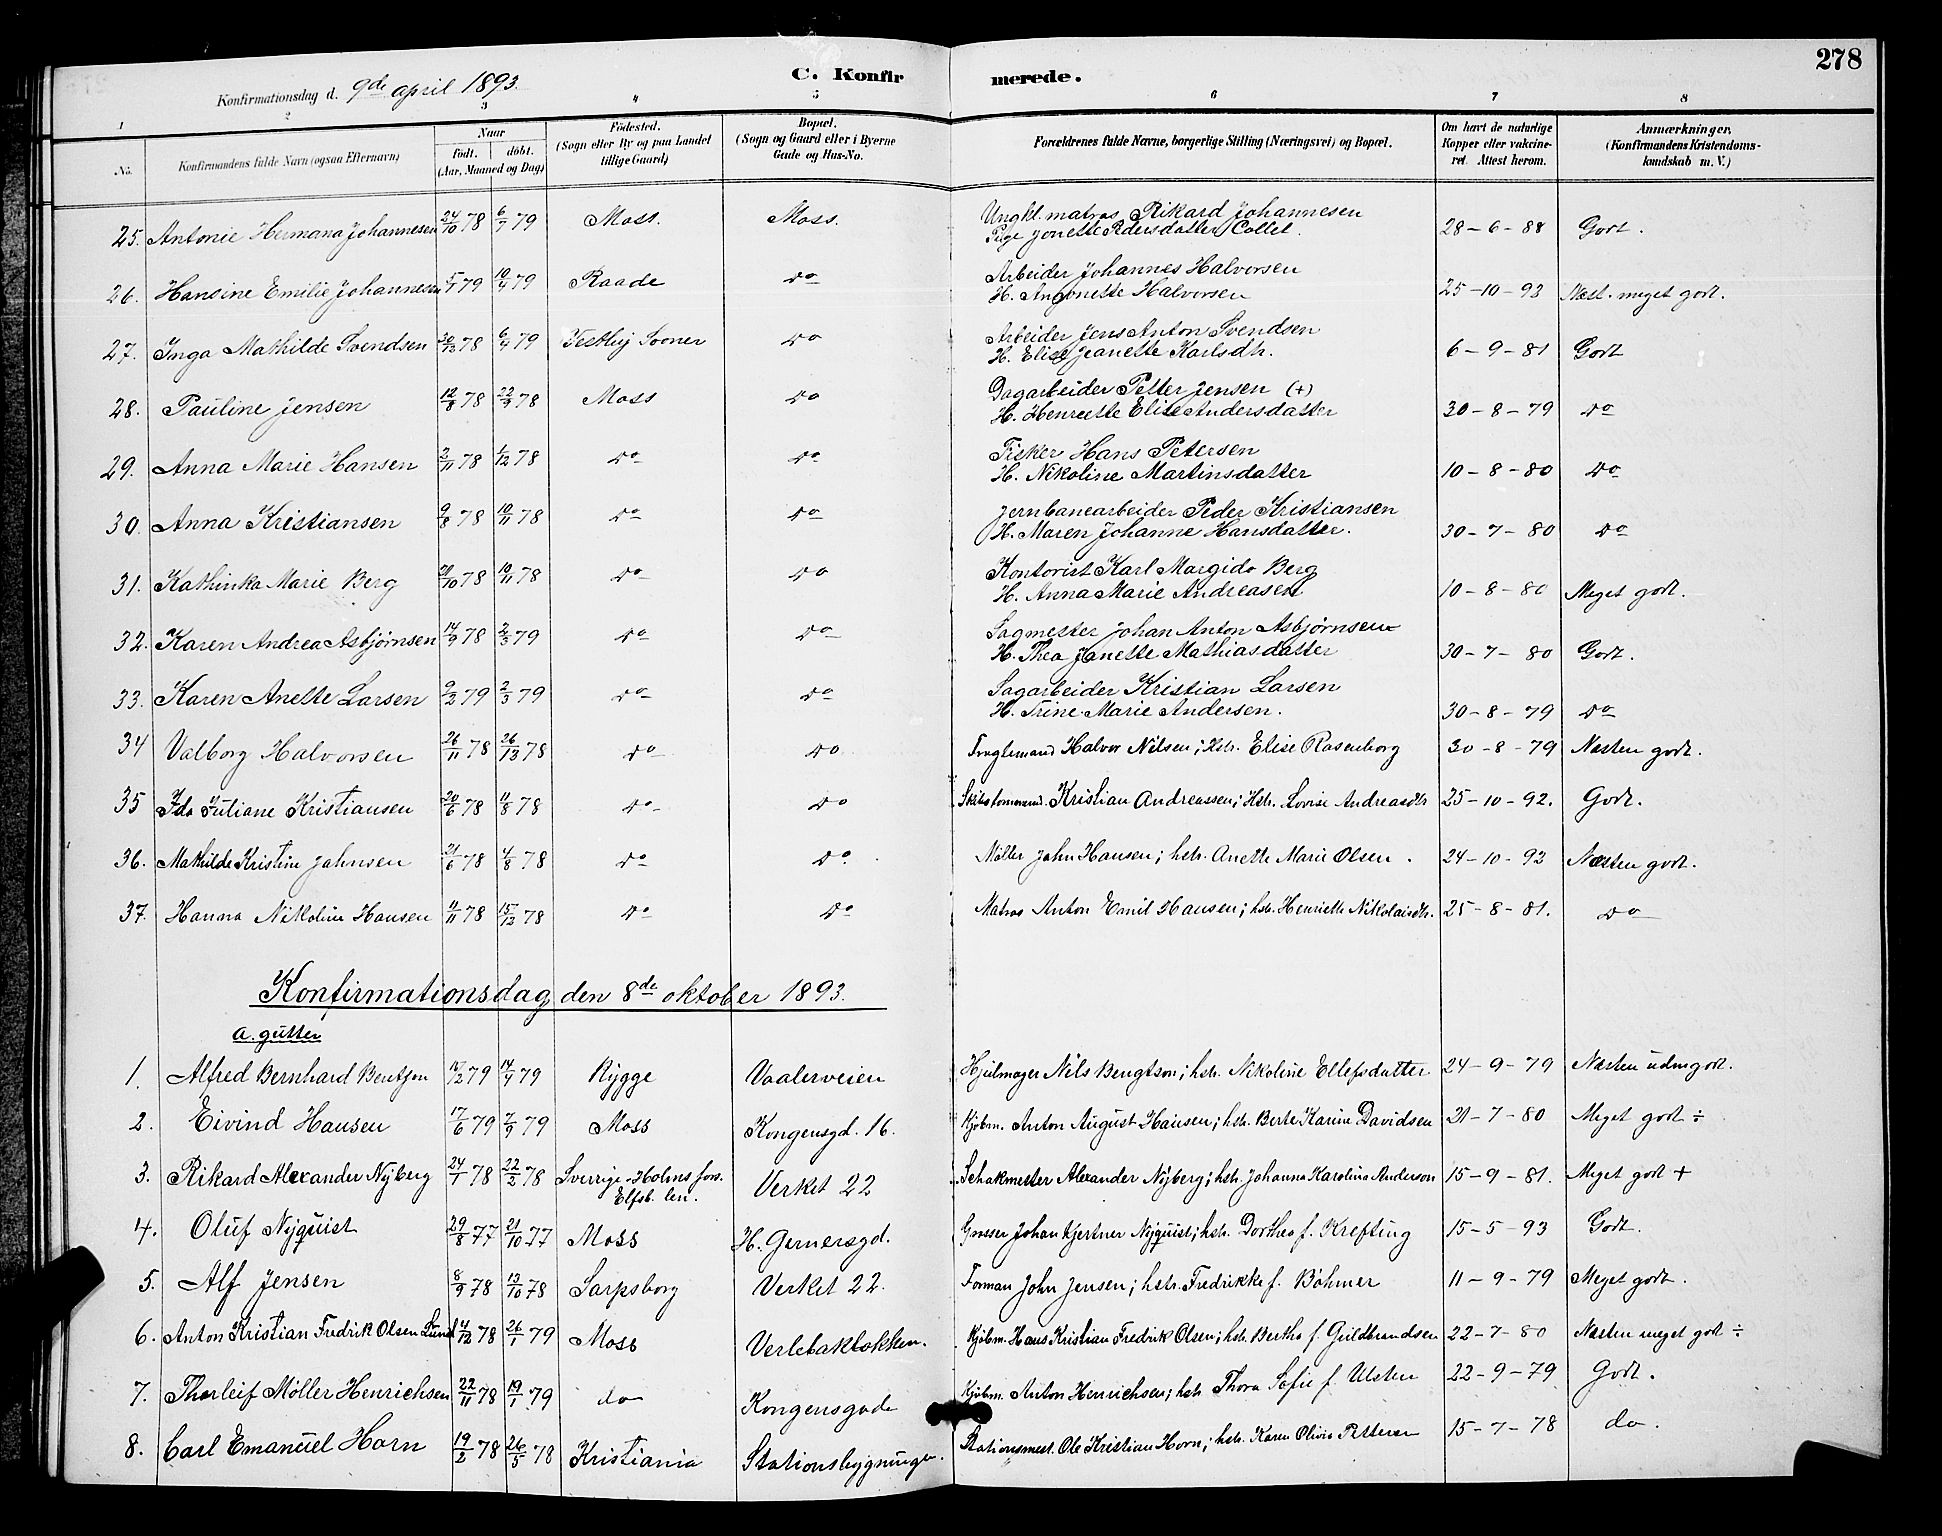 278
C. Konfirmerede.
Konfirmationsdag d. 9de april 1893.
1 2 3 4 5 6 7 8
No. Konfirmandens fulde Navn (ogsaa Efternavn) Naar Født. døbt. (Aar, Maaned og Dag) Fødested. (Sogn eller By og paa Landet tillige Gaard) Bopæl. (Sogn og Gaard eller i Byerne Gade og Hus-No. Forældrenes fulde Navne, borgerlige Stilling (Næringsvei) og Bopæl. Om havt de naturlige Kopper eller vakcineret. Attest herom. Anmærkninger. (Konfirmandens Kristendomskundskab m. V.)
25. Antonie Hermana Johannesen 24/10 78 6/7 79 Moss. Moss. Ungkl. matros Rikard Johannesen 28-6-88 Godt.
Pige Jonette Pedersdatter Collet.
26. Hansine Emilie Johannesen 5/1 79 10/4 79 Raade Do Arbeider Johannes Halvorsen 25-10-93 Næst. meget godt.
H. Antonette Halvorsen
27. Inga Mathilde Svendsen 30/12 78 6/4 79 Vestby Sooner Do Arbeider Jens Anton Svendsen 6-9-81 Godt
H. Elise Jeanette Karlsdtr.
28. Pauline Jensen 12/8 78 22/9 78 Moss Do Dagarbeider Petter Jensen (+) 30-8-79 Do
H. Henreette Elise Andersdatter
29. Anna Marie Hansen 2/11 78 1/12 78 Do Do Fisker Hans Petersen 10-8-80 Do
H. Nikoline Martinsdatter
30. Anna Kristiansen 9/8 78 10/11 78 Do Do Jernbanearbeider Peder Kristiansen 30-7-80 Do
H. Maren Johanne Hansdatter.
31. Kathinka Marie Berg 21/10 78 10/11 78 Do Do Kontorist Karl Margido Berg 10-8-80 Meget godt.
H. Anna Marie Andreasen
32. Karen Andrea Asbjørnsen 14/9 78 2/3 79 Do Do Sagmester Johan Anton Asbjørnsen 30-7-80 Godt.
H. Thea Janette Mathiasdatter
33. Karen Anette Larsen 9/2 79 2/3 79 Do Do Sagarbeider Kristian Larsen 30-8-79 Do
H. Trine Marie Andersen.
34 Valborg Halvorsen 26/11 78 26/12 78 Do Do Halvor Nilsen; Hstr. Elise Rosenborg 30-8-79 Næsten godt.
35 Ida Juliane Kristiansen 20/6 78 11/8 78 Do Do Skibstømmerm. Kristian Andreassen; Hstr. Lovise Andreasdtr 25-10-92. Godt.
36. Mathilde Kristine Johnsen 21/6 78 4/8 78 Do Do Møller John Hansen; hstr. Anette Marie Olsen. 24-10-92 Næsten godt.
37. Hanna Nikoline Hansen 11/11 78 15/12 78 Do Do Matros Anton Emil Hansen; hstr. Henriette Nikolaisdtr. 25-8-81. Do
Konfirmationsdag den 8de oktober 1893.
a. gutter
1. Alfred Bernhard Bentsen 16/2 79 14/4 79 Rygge Vaalerveien Hjulmager Nils Bengtson; hstr. Nikoline Ellefsdatter 24-9-79 Næsten udm godt.
2. Eivind Hansen 17/6 79 7/9 79 Moss Kongensgd. 16. Kjøbm. Anton August Hansen; hstr. Berte Karine Davidsen 21-7-80 Meget godt ÷
3. Rikard Alexander Nyberg 24/1 78 22/2 78 Sverrige-Holms fors. Elfsb. len. Verket 22 Schakmester Alexander Nyberg; hstr. Johanna Karolina Anderson 15-9-81. Meget godt +
4. Oluf Nyquist 29/8 77 21/10 77 Moss H. Gernersgd. Grosser Johan Hjertner Nyquist; hstr. Dorthea f. Krefting 15-5-93 Godt.
5. Alf Jensen 8/9 78 13/10 78 Sarpsborg Verket 22. Forman John Jensen; hstr. Fredrikke f. Böhmer 11-9-79 Meget godt.
6. Anton Kristian Fredrik Olsen Lund 4/12 78 26/1 79 Moss Verlebakløkken. Kjöbm. Hans Kristian Fredrik Olsen; hstr. Bertha f. Guldbrandsen 22-7-80 Næsten meget godt ÷
7. Thorleif Møller Henrichsen 22/11 78 19/1 79 do Kongensgade Kjöbm. Anton Henrichsen; hstr Thora Sofie f. Ulsten 22-9-79 Godt.
8. Carl Emanuel Horn 19/2 78 26/5 78 Kristiania Stationsbygningen. Stationsmest. Ole Kristian Horn; hstr. Karen Olivia Pettersen 15-7-78 do.